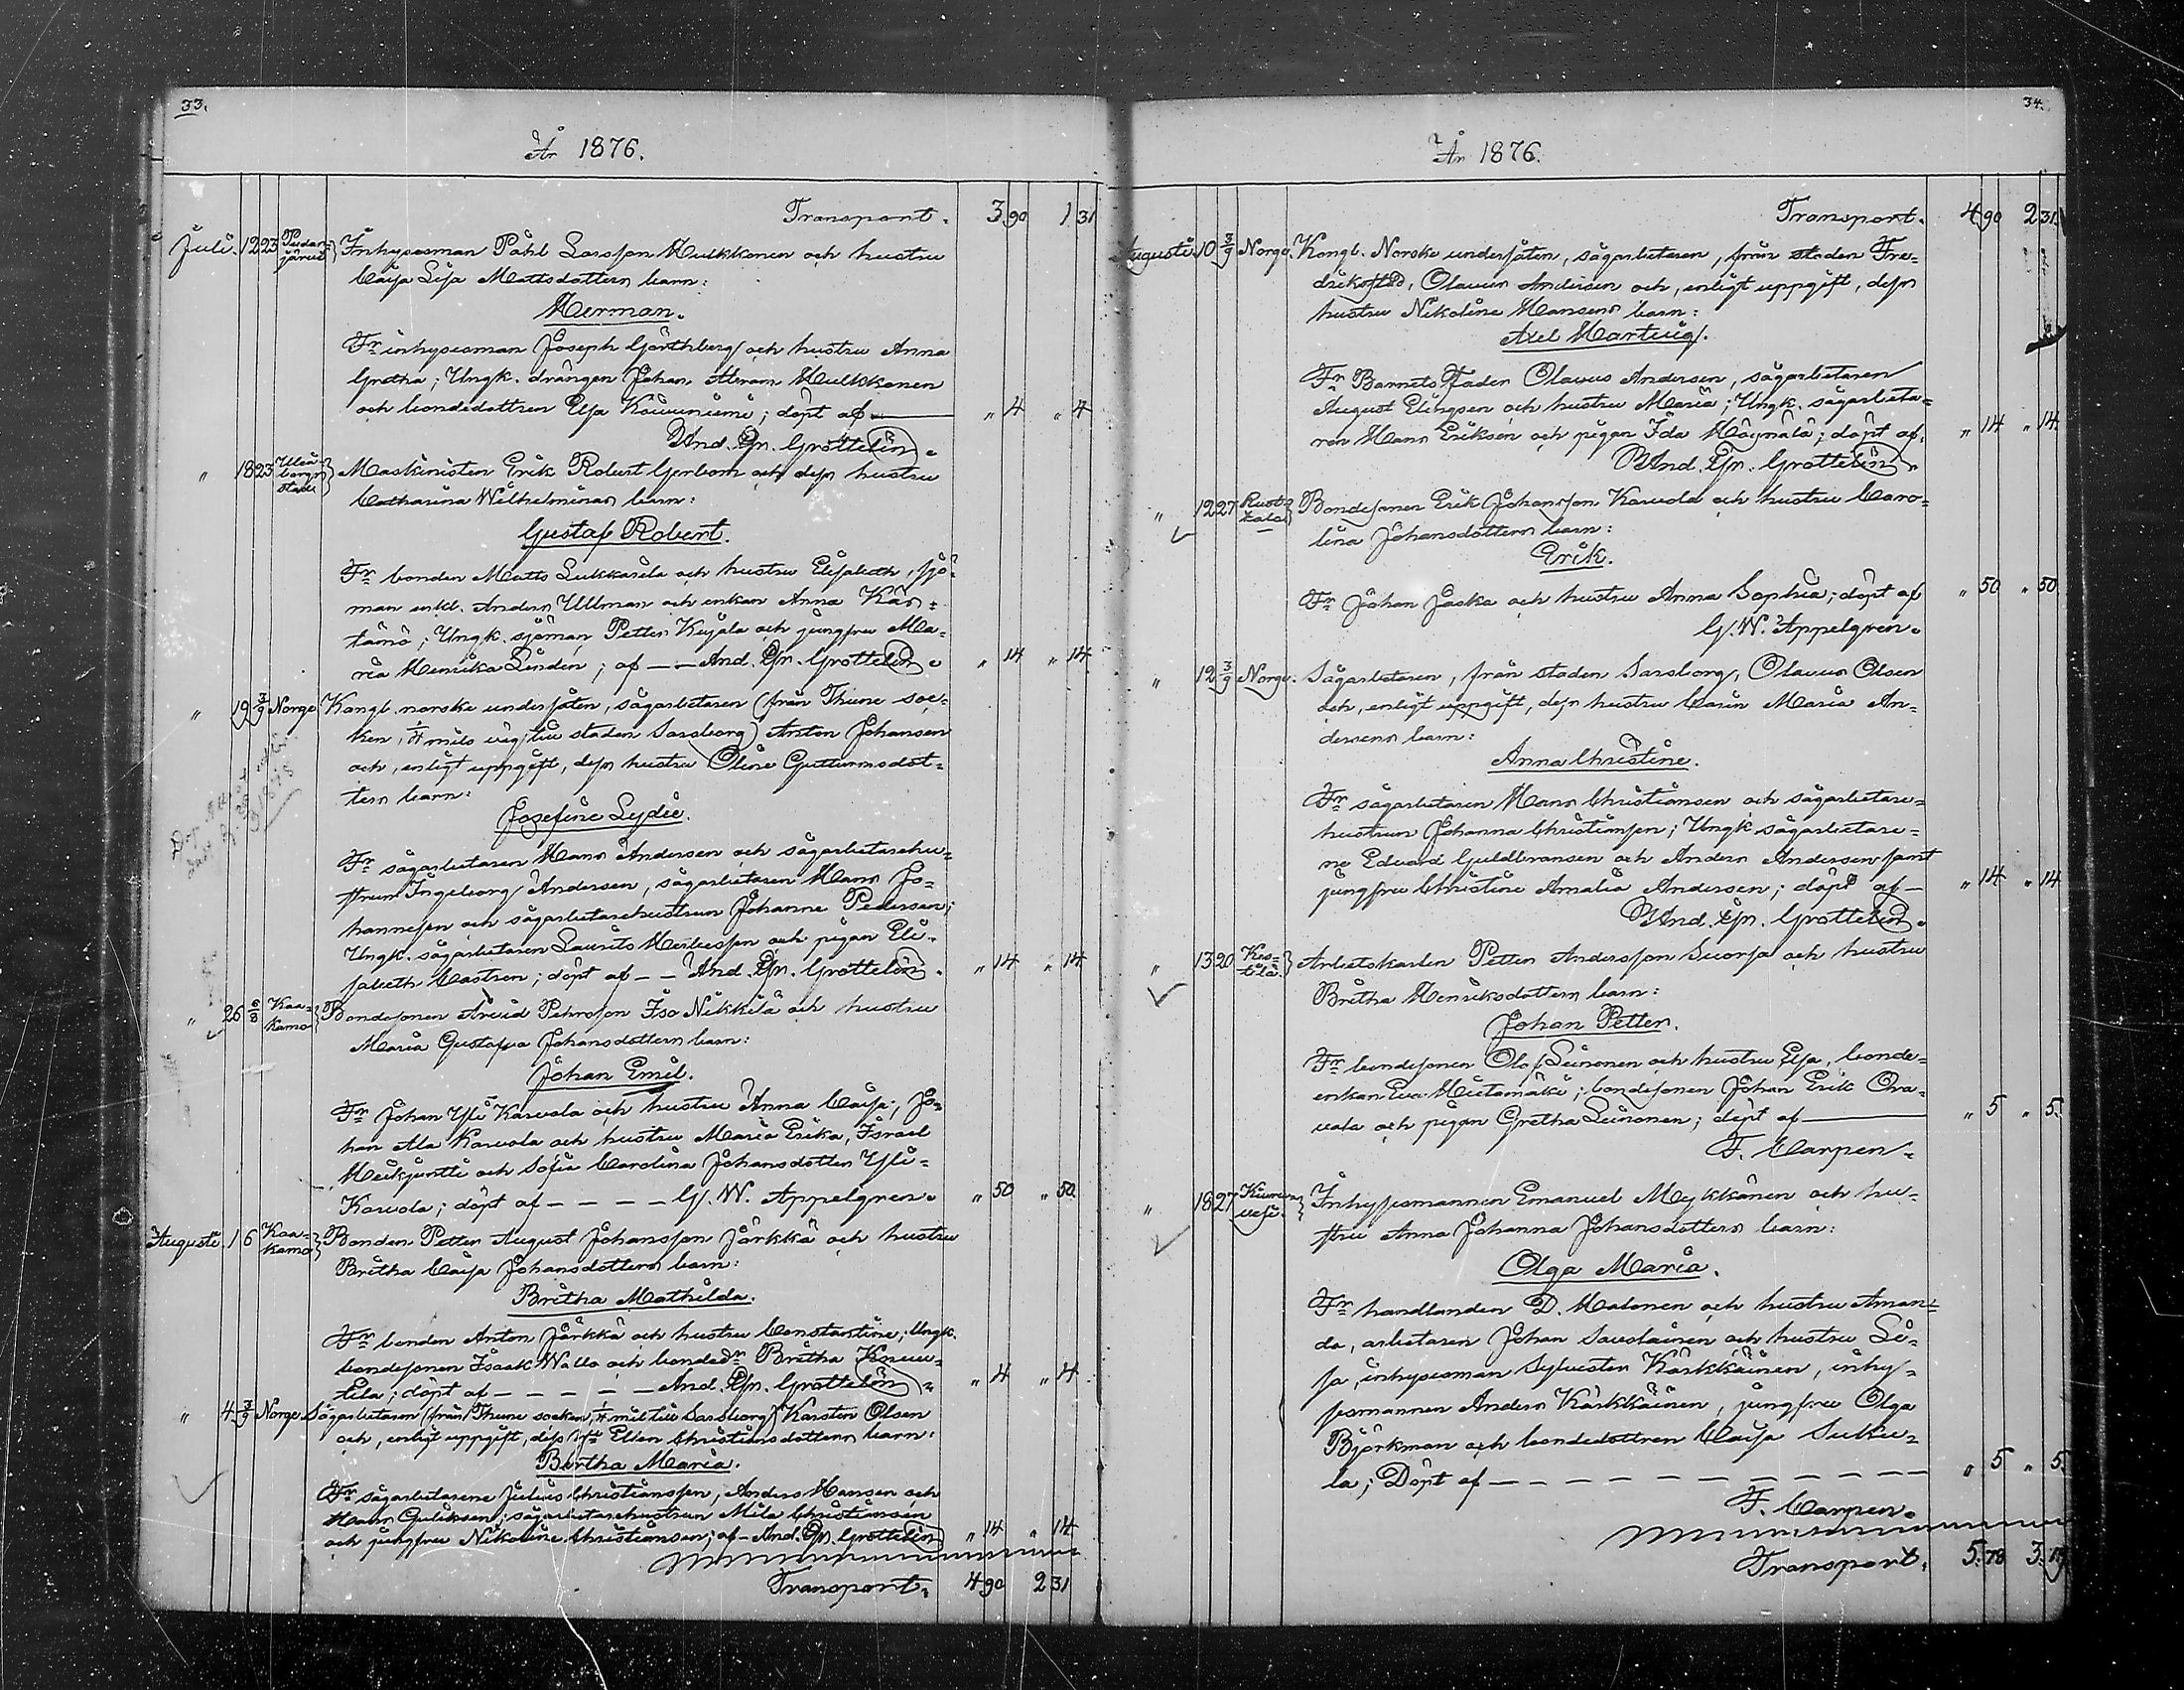 33.
År 1876.
Transport. 3 90 1 31
Juli. 12 23 Pudas-
järvi
Inhysesman Påhl Larsson Hulkkonen och hustru
Caisa Lisa Mattsdotters barn:
Herman.
Fr inhysesman Joseph Görthberg och hustru Anna
Gretha; Ungk. drängen Johan Abram Hulkkonen
och bondedottren Elsa Kouvuniemi; döpt af „ 4 „ 4
And. Gr. Grottelin.
„ 18 23 Uleå-
borgs
stad
Maskinisten Erik Robert Gerbom och dess hustru
Catharina Wilhelminas barn:
Gustaf Robert.
Fr bonden Matts Lukkarila och hustru Elisabeth, sjö-
man enkl. Anders Ullman och enkan Anna Kär-
tämö; Ungk. sjöman Petter Kujala och jungfru Ma-
ria Henrika Lindén; af — — And. Gr. Grottelin. „ 14 „ 14
„ 19 3/9 Norge
Kongl. norske undersåten, sågarbetaren (från Thune soc-
ken, 1/4 mils väg till staden Sarsborg) Anton Johansen
och, enligt uppgift, dess hustru Oline Gutturmsdot-
ters barn:
Josefine Lydie.
Fr sågarbetaren Hans Andersen och sågarbetarehu-
strun Ingeborg Andersen, sågarbetaren Hans Jo-
hannesen och sågarbetarehustrun Johanne Pedersen;
Ungk. sågarbetaren Laurits Meibesson och pigan Eli-
sabeth Castren; döpt af — — And. Gr. Grottelin. „ 14 „ 14
„ 26 6/8 Kaa-
kamo
Bondesonen Arvid Pehrsson Iso Nikkilä och hustru
Maria Gustafva Johansdotters barn:
Johan Emil.
Fr Johan Yli Karvola och hustru Anna Caisa; Jo-
han Ala Karvola och hustru Maria Erika, Israel
Meikjuntti och Sofia Carolina Johansdotter Yli-
Karvola; döpt af — — — — G. W. Appelgren. „ 50 „ 50
Augusti. 1 6 Kaa-
kamo
Bonden Petter August Johansson Järkkä och hustru
Britha Caisa Johansdotters barn:
Britha Mathilda.
Fr bonden Anton Järkkä och hustru Constantine; Ungk.
bondesonen Isaak Wallo och bondedr Britha Knuu-
tila; döpt af — — — — — And. Gr. Grottelin. „ 4 „ 4
„ 4 3/9 Norge
Sågarbetaren (från Thune socken, 1/4 mil till Sarsborg) Karsten Olsen
och, enligt uppgift, dess hu Ellen Christiansdotters barn:
Bertha Maria.
Fr sågarbetarene Julius Christianssen, Anders Hansen och
Hans Guliksen; sågarbetarehustrun Mila Christiansen
och jungfru Nikoline Christiansen; af — And. Gr. Grottelin „ 14 „ 14
Transport. 4 90 2 31
34.
År 1876.
Transport. 4 90 2 31.
Augusti. 10 3/9 Norge.
Kongl. Norske undersåten, sågarbetaren, från staden Fre-
drikssted, Olavus Andersen och, enligt uppgift, dess
hustru Nikoline Hansens barn:
Axel Hartvig.
Fr Barnets Fader Olavus Andersen, sågarbetaren
August Elingsen och hustru Maria; Ungk. sågarbeta-
ren Hans Eriksen och pigan Ida Högnälä; döpt af. „ 14 „ 14.
And. Gr. Grottelin.
„ 12 27 Ruot-
tala
Bondesonen Erik Johansson Karvola och hustru Caro-
lina Johansdotters barn:
Erik.
Fr Johan Jaska och hustru Anna Sophia; döpt af „ 50 „ 50
G. W. Appelgren.
„ 12 3/9 Norge.
Sågarbetaren, från staden Sarsborg, Olavus Olsen
och, enligt uppgift, dess hustru Carin Maria An-
dersens barn:
Anna Christine.
Fr sågarbetaren Hans Christiansen och sågarbetare-
hustrun Johanna Christiansen; Ungk. sågarbetare-
ne Eduard Guldbransen och Anders Andersen samt
jungfru Christine Amalia Andersen; döpt af — „ 14 „ 14
And. Gr. Grottelin.
„ 13 20 Kes-
tilä.
Arbetskarlen Petter Andersson Suorsa och hustru
Britha Henriksdotters barn:
Johan Petter.
Fr bondesonen Olof Leinonen och hustru Elsa, bonde-
enkan Eva Mietamäki; bondesonen Johan Erik Ora-
vala och pigan Gretha Leinonen; döpt af „ 5 „ 5.
F. Carpen.
„ 18 27 Kiuru-
vesi.
Inhysesmannen Emanuel Mykkänen och hu-
stru Anna Johanna Johansdotters barn:
Olga Maria.
Fr handlanden D. Malonen och hustru Aman-
da, arbetaren Johan Savolainen och hustru Li-
sa, inhysesman Sylvester Kärkkäinen, inhy-
sesmannen Anders Kärkkäinen, jungfru Olga
Björkman och bondedottren Caisa Suku-
la; Döpt af — — — — — — — — — „ 5 „ 5.
F. Carpen.
Transport. 5. 78 3. 19